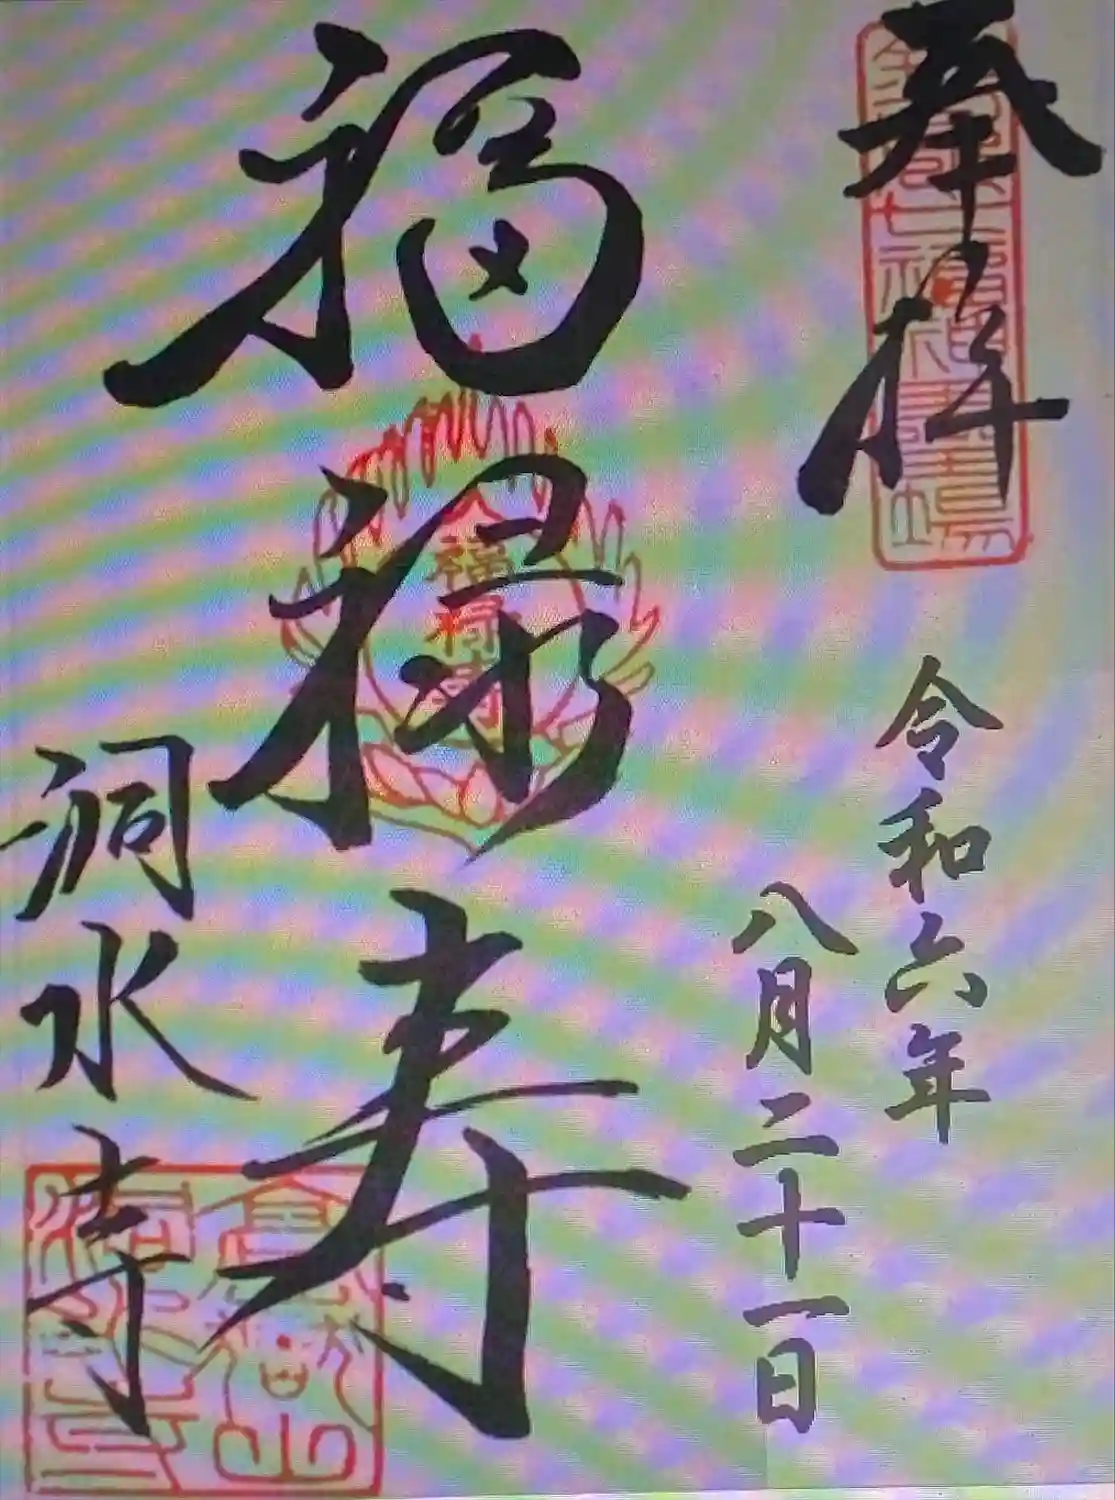 奉拝
令和六年
八月二十一日
福禄寿
福禄寿
洞水寺